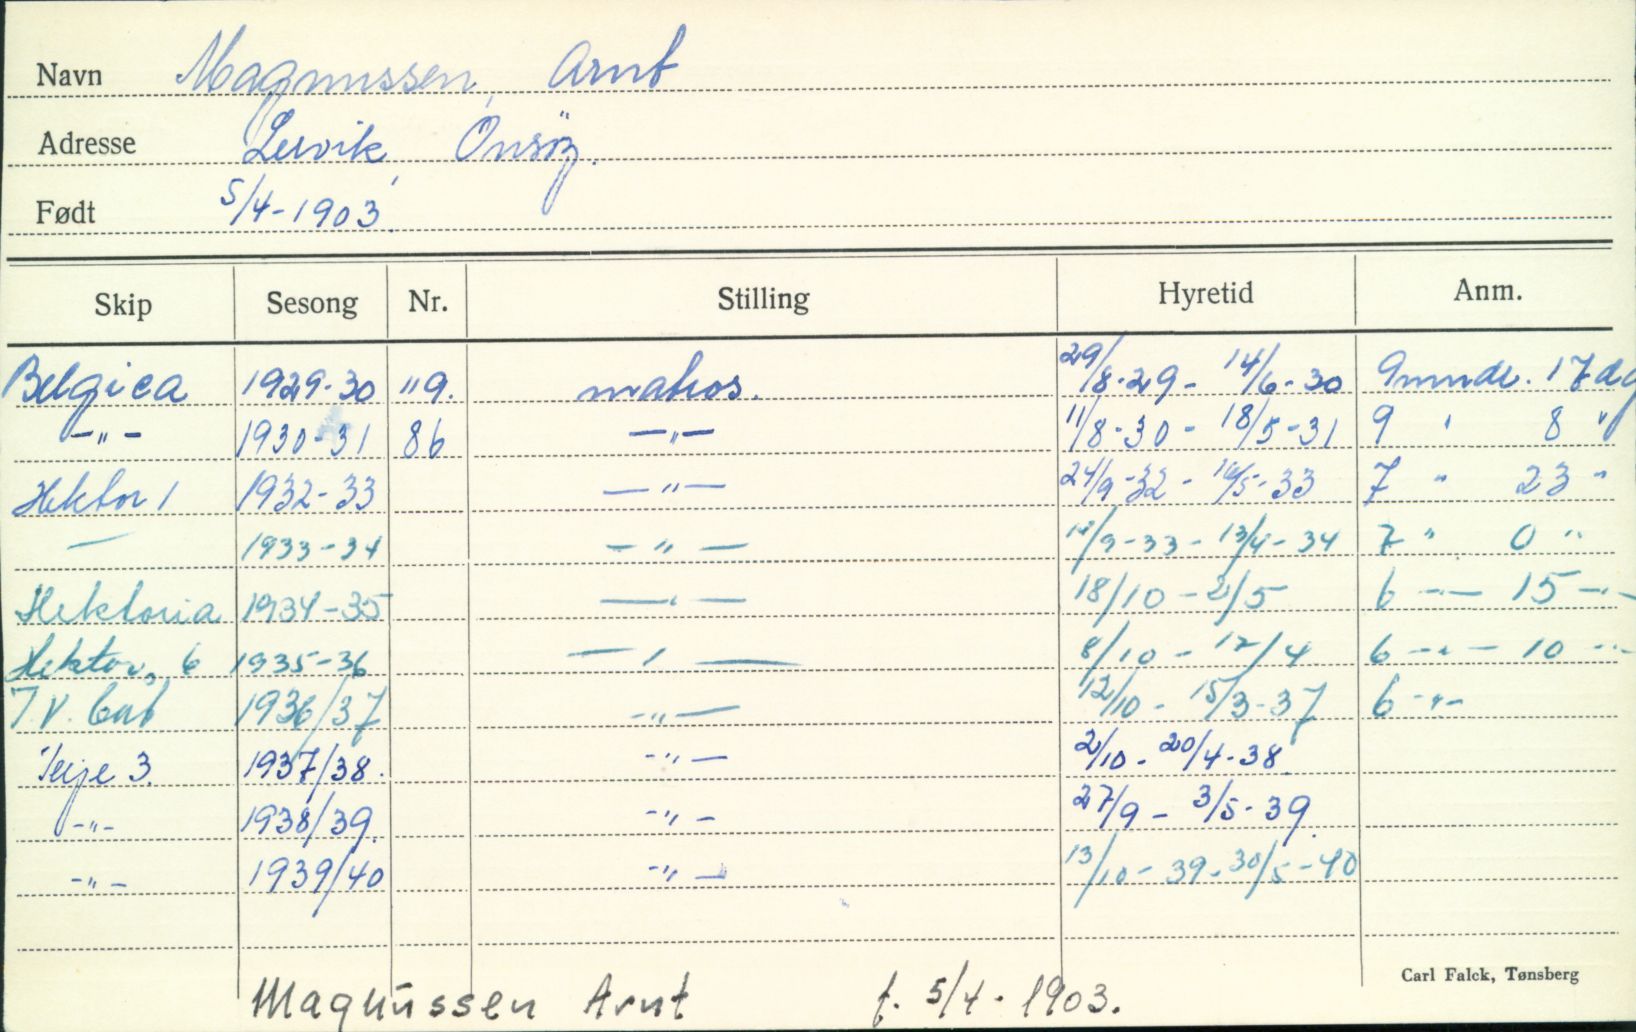 Navn Magnussen, Arnt
Adresse Lervik, Onsöy.
Født 5/4-1903.
Skip Sesong Nr. Stilling Hyretid Anm.
Belgica 1929-30 "9. matros. 29/8-29- 14/6-30 9 mnde. 17 dg
-"- 1930-31 86 -"- 11/8-30 - 18/5-31 9 " 8 "
Hektor 1 1932-33 -"- 24/9-32 - 16/5-33 7 " 23 "
— 1933-34 -"- 14/9-33 - 13/4-34 7 " 0 "
Hektoria 1934-35 -"- 18/10 - 2/5 6 -"- 15 -"-
Hektor, 6 1935-36 -"- 8/10 - 12/4 6 -"- 10 -"-
1936/37 -"- 12/10 - 15/3-37 6 -"-
Terje 3. 1937/38. -"- 2/10 - 20/4-38
-"- 1938/39. -"- 27/9 - 3/5-39.
-"- 1939/40 -"- 13/10-39-30/5-40
Carl Falck, Tønsberg
Magnussen Arnt f. 5/4-1903.